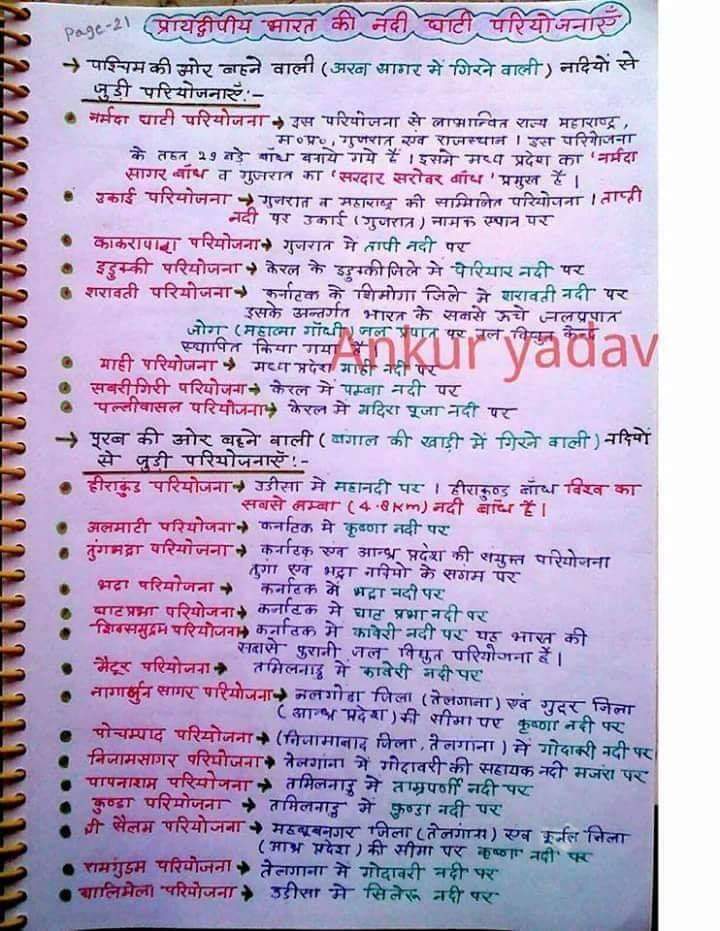 Page-21 प्रायद्वीपीय भारत की नदी घाटी परियोजनाएँ
→ पश्चिम की ओर बहने वाली (अरब सागर में गिरने वाली) नदियों से
जुड़ी परियोजनाएँ:-
• नर्मदा घाटी परियोजना → इस परियोजना से लाभान्वित राज्य महाराष्ट्र,
म०प्र०, गुजरात एवं राजस्थान । इस परियोजना
के तहत 29 बड़े बांध बनाये गये हैं । इसमें मध्य प्रदेश का 'नर्मदा
सागर बाँध' व गुजरात का 'सरदार सरोवर बाँध' प्रमुख हैं |
• उकाई परियोजना → गुजरात व महाराष्ट्र की सम्मिलित परियोजना । ताप्ती
नदी पर उकाई (गुजरात) नामक स्थान पर
• काकरापारा परियोजना → गुजरात में तापी नदी पर
• इडुक्की परियोजना → केरल के इडुक्की जिले में पेरियार नदी पर
• शरावती परियोजना → कर्नाटक के शिमोगा जिले में शरावती नदी पर
इसके अन्तर्गत भारत के सबसे ऊचे जलप्रपात
जोग (महात्मा गाँधी) जल प्रपात पर जल विद्युत केन्द्र
स्थापित किया गया है
Ankur yadav
• माही परियोजना → मध्य प्रदेश माही नदी पर
• सबरीगिरी परियोजना → केरल में पम्बा नदी पर
• पल्लीवासल परियोजना → केरल में मदिरा पूजा नदी पर
→ पूरब की ओर बहने वाली (बंगाल की खाड़ी में गिरने वाली) नदियों
से जुड़ी परियोजनाएँ:-
• हीराकुंड परियोजना → उडीसा में महानदी पर । हीराकुण्ड बाँध विश्व का
सबसे लम्बा (4.8Km) नदी बाँध है |
• अलमाटी परियोजना → कर्नाटक में कृष्णा नदी पर
• तुंगभद्रा परियोजना → कर्नाटक एवं आन्ध्र प्रदेश की संयुक्त परियोजना
तुगा एवं भद्रा नदियो के संगम पर
• भद्रा परियोजना → कर्नाटक में भद्रा नदी पर
• घाटप्रभा परियोजना → कर्नाटक मे घाट प्रभा नदी पर
• शिवसमुद्रम परियोजना → कर्नाटक में कावेरी नदी पर यह भारत की
सबसे पुरानी जल विद्युत परियोजना है |
• मैटूर परियोजना → तमिलनाडु में कावेरी नदी पर
• नागार्जुन सागर परियोजना → नलगोंडा जिला (तेलंगाना) एवं गुंटूर जिला
(आन्ध्र प्रदेश) की सीमा पर कृष्णा नदी पर
• पोचम्पाद परियोजना → (निजामाबाद जिला, तेलगाना) में गोदावरी नदी पर
• निजामसागर परियोजना → तेलगांना में गोदावरी की सहायक नदी मंजरा पर
• पापनाशम परियोजना → तमिलनाडु में ताम्रपर्णी नदी पर
• कुण्डा परियोजना → तमिलनाडु में कुण्डा नदी पर
• श्री सैलम परियोजना → महबूबनगर जिला (तेलंगाना) एवं कुर्नूल जिला
(आंध्र प्रदेश) की सीमा पर कृष्णा नदी पर
• रामगुंडम परियोजना → तेलंगाना में गोदावरी नदी पर
• बालिमेला परियोजना → उडीसा में सिलेरू नदी पर